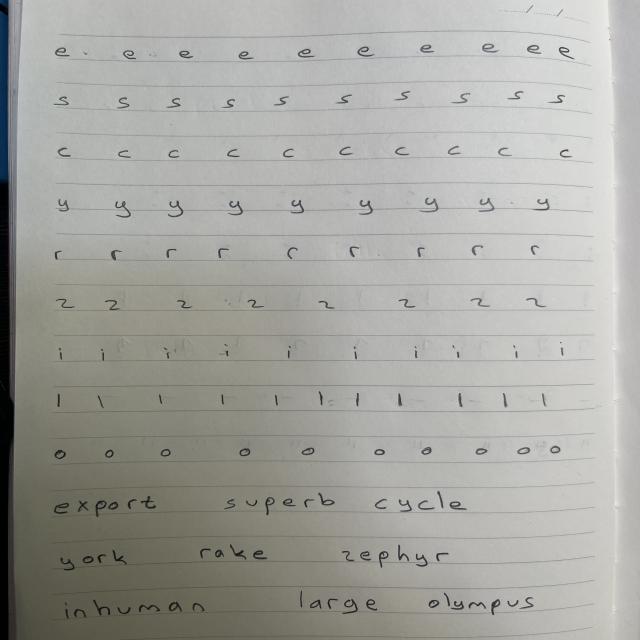 e e e e e e e e e e
s s s s s s s s s s
c c c c c c c c c c
y y y y y y y y y
r r r r r r r r r
z z z z z z z z
i i i i i i i i i i
l l l l l l l l l l l
o o o o o o o o o o
export superb cycle
york rake zephyr
inhuman large olympus